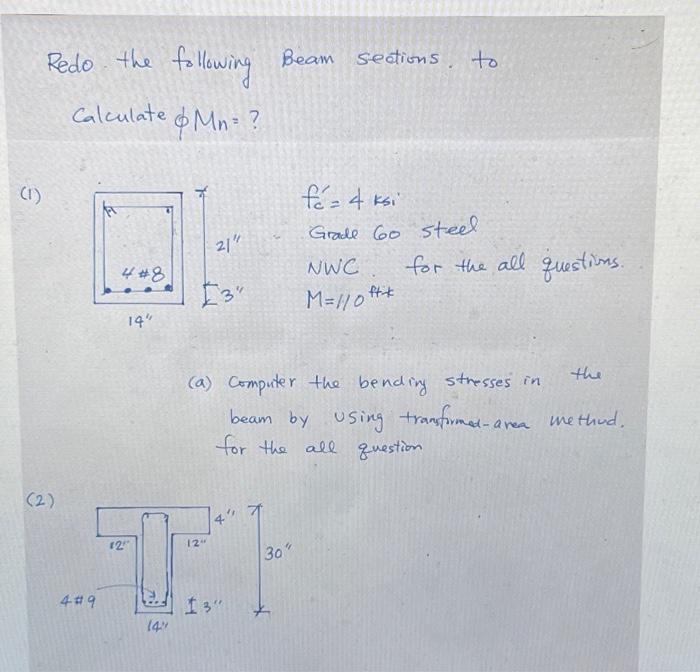 Redo the following Beam sections. to
Calculate ϕMn=?
(1)
f'c = 4 ksi
Grade 60 steel
NWC. for the all questions.
M=110 ft-k
21"
4 #8
3"
14"
(a) Computer the bending stresses in the
beam by using transformed-area method.
for the all question
(2)
4"
12"
12"
30"
4#9
3"
14"